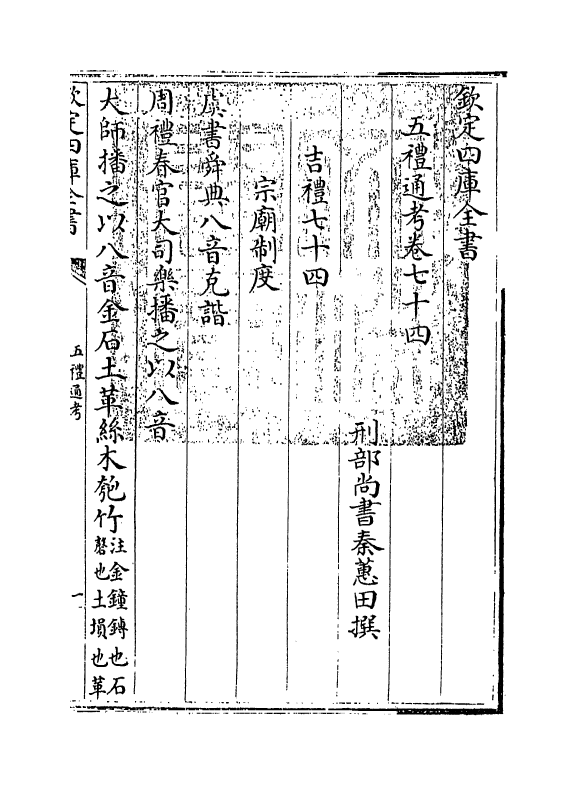 欽定四庫全書
五禮通考卷七十四
刑部尚書秦蕙田撰
吉禮七十四
宗廟制度
虞書舜典八音克諧
周禮春官大司樂播之以八音
大師播之以八音金石土革絲木匏竹
注金鐘鎛也石
磬也土塤也革
欽定四庫全書
五禮通考
一